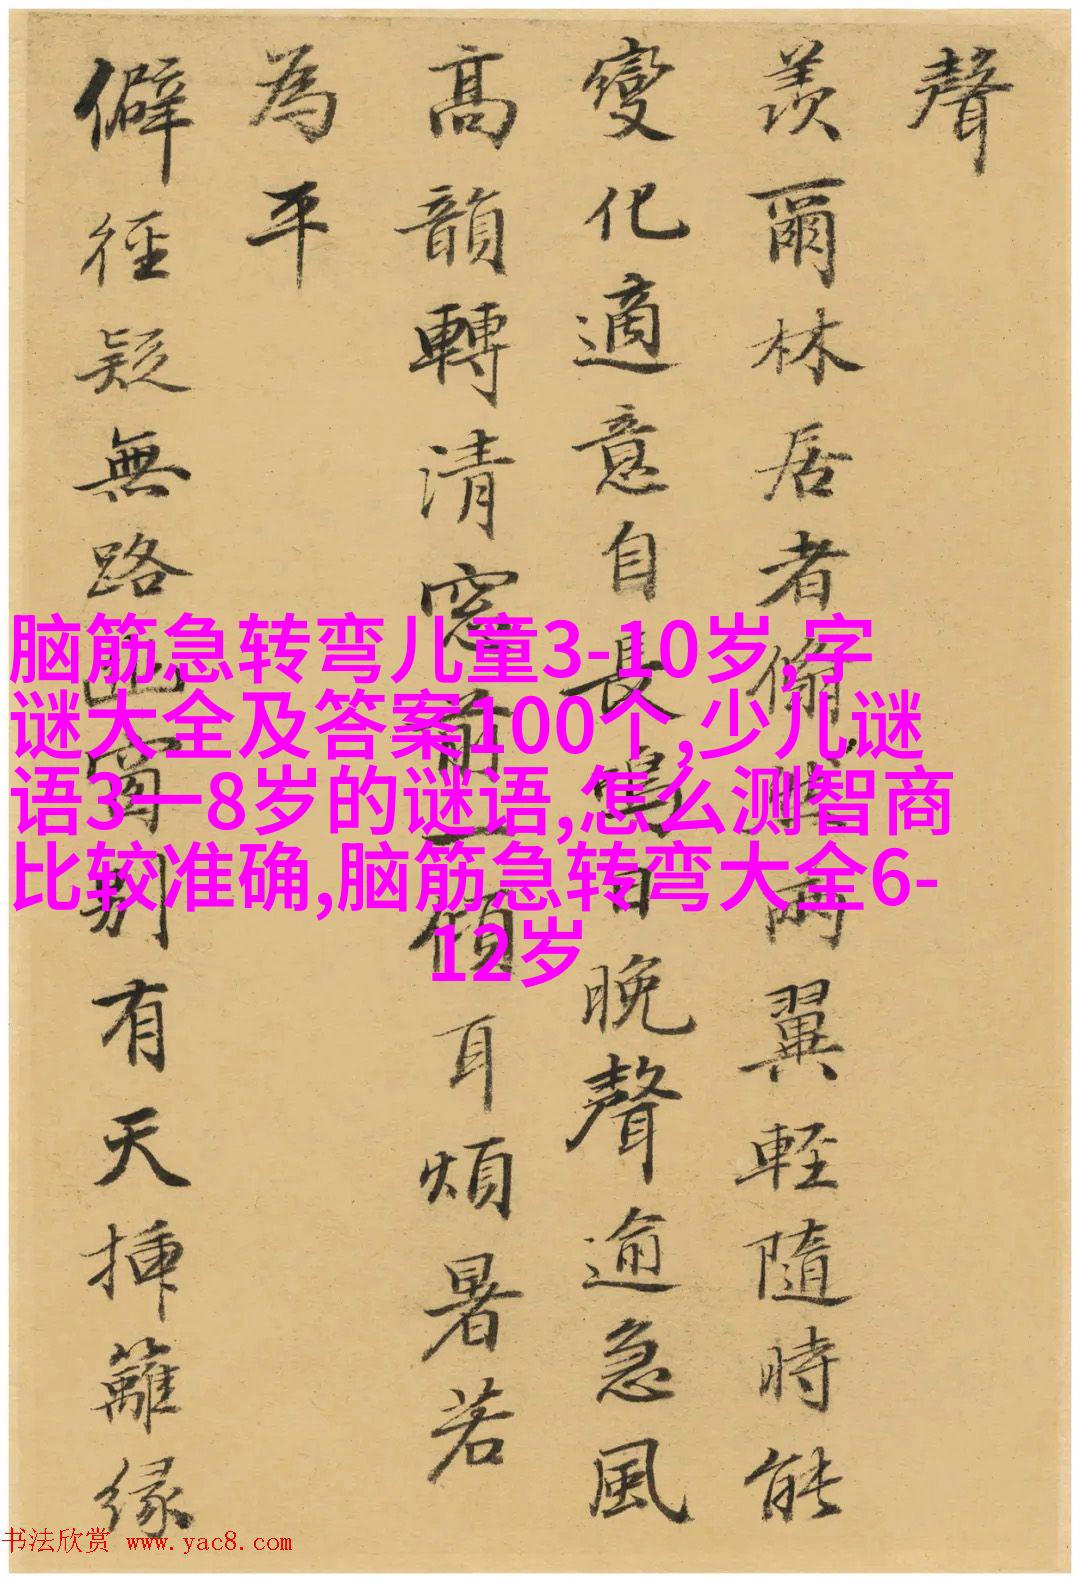 聲
羨爾林居者翛然兩翼輕隨時能
變化適意自長鳴日晚聲逾急風
高韻轉清窓前一傾耳煩暑若
為平
僻徑疑無路幽窗別有天挿籬緣
脑筋急转弯儿童3-10岁,字
谜大全及答案100个,少儿谜
语3一8岁的谜语,怎么测智商
比较准确,脑筋急转弯大全6-
12岁
书法欣赏 www.yac8.com